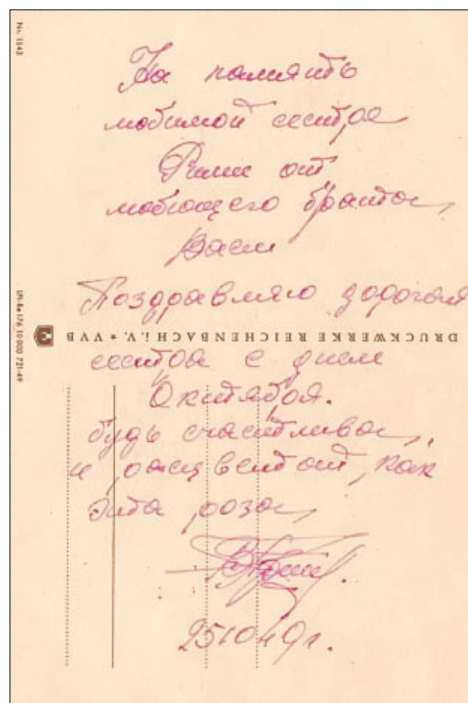 No. 1843
На память
любимой сестре
от
любящего брата
Васи
Поздравляю дорогая
DRUCKWERKE REICHENBACH i. V. * VVB
сестра с днем
Октября.
будь счастлива
и расцветай, как
эта роза
25 10 49г.